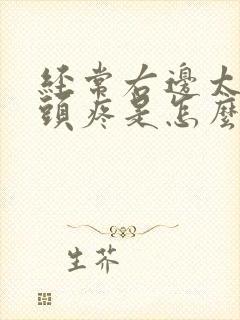 經常右邊太
頭疼是怎麼
生芥